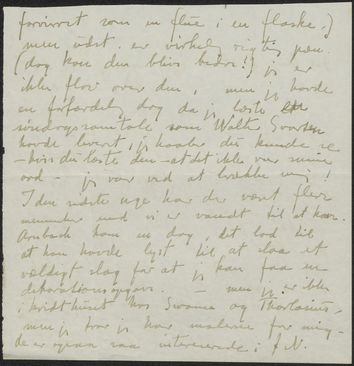 forvirret som en flue i en flaske.)
men ødst. er virkelig rigtig pæn.
(dog kan den blive bedre!) jeg er
ikke flov over den, men jeg havde
en forfærdelig dag da jeg læste
søndagssamtale som Walter
havde lavet, jeg haaber du kunde se
– hvis du læste den – at det ikke var mine
ord – jeg var ved at brække mig!
I den sidste uge har der været flere
mennesker ned vi er vandt til at
kom en dag, det lod til
at han havde lyst til at slaa et
vældigt slag for at jeg kan faa en
dekorationsopgave. – men jeg er ikke
i kridthuset hos Swane og Thorlacius,
men jeg tror jeg har malerne for mig –
de er ogsaa saa interesserede i J.N.